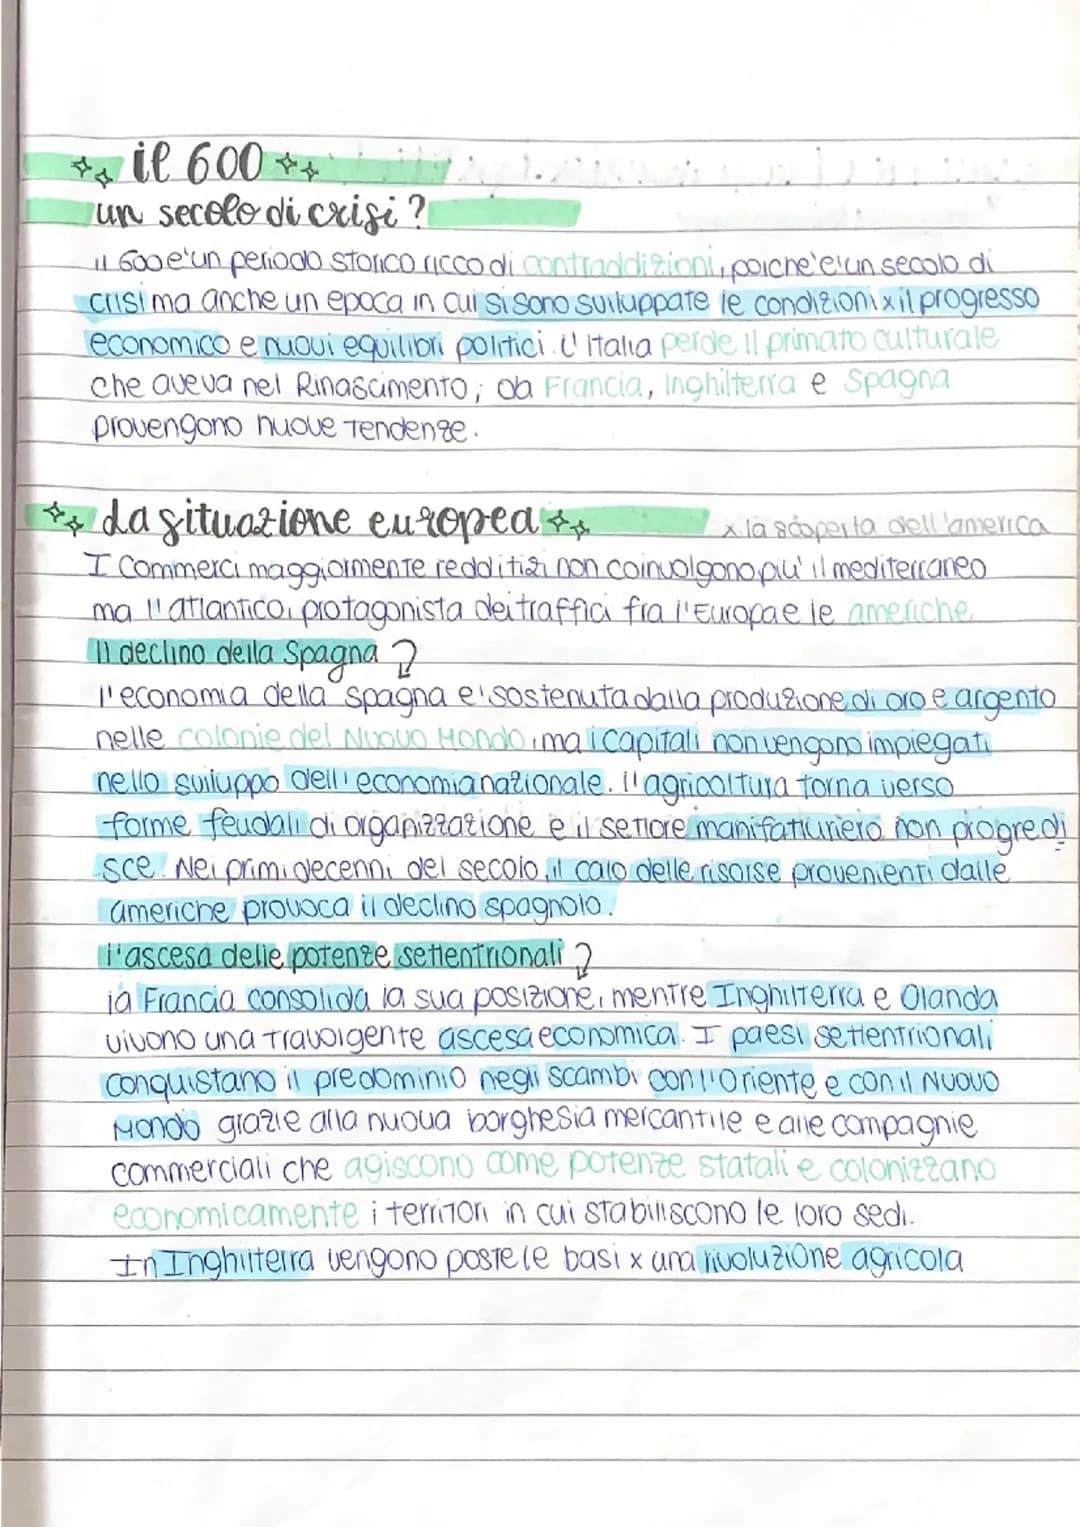 il 600
un secolo di crisi?
il 600 e' un periodo storico ricco di contraddizioni, poiche' e' un secolo di
crisi ma anche un epoca in cui si sono sviluppate le condizioni x il progresso
economico e nuovi equilibri politici. L'Italia perde il primato culturale
che aveva nel Rinascimento; da Francia, Inghilterra e Spagna
provengono nuove tendenze.
La situazione europea
x la scoperta dell'america
I commerci maggiormente redditizi non coinvolgono piu' il mediterraneo
ma l'atlantico, protagonista dei traffici fra l'Europa e le americhe
Il declino della Spagna
l'economia della spagna e' sostenuta dalla produzione di oro e argento
nelle colonie del Nuovo Mondo, ma i capitali non vengono impiegati
nello sviluppo dell'economia nazionale. l'agricoltura torna verso
forme feudali di organizzazione e il settore manifatturiero non progredi
sce. Nei primi decenni del secolo, il calo delle risorse provenienti dalle
americhe provoca il declino spagnolo.
l'ascesa delle potenze settentrionali
la Francia consolida la sua posizione, mentre Inghilterra e Olanda
vivono una travolgente ascesa economica. I paesi settentrionali
conquistano il predominio negli scambi con l'Oriente e con il Nuovo
Mondo grazie alla nuova borghesia mercantile e alle compagnie
commerciali che agiscono come potenze statali e colonizzano
economicamente i territori in cui stabiliscono le loro sedi.
In Inghilterra vengono poste le basi x una rivoluzione agricola